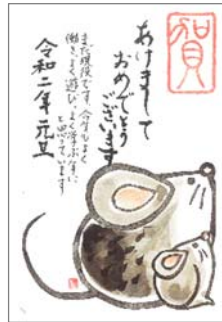 賀
あけまして
おめでとう
ございます
まだ現役です。今年もよく
働き、よく遊び、よく学ぶ年に
と思っています
令和二年元旦